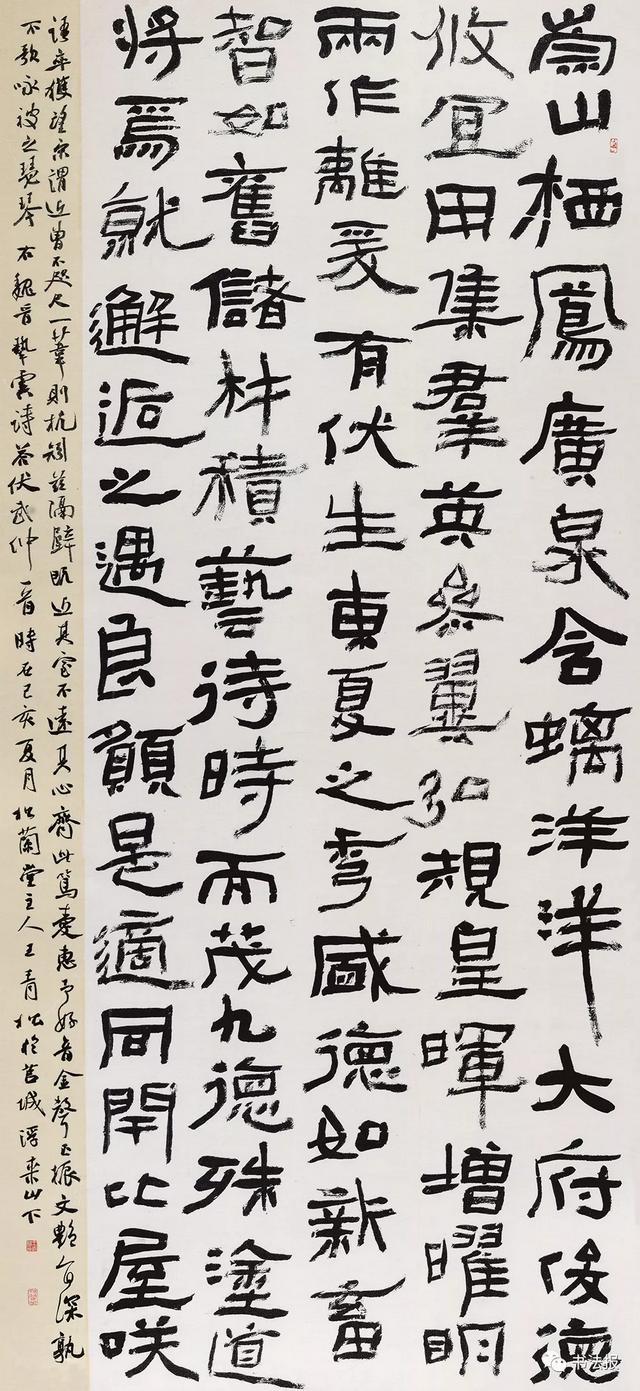 崇山栖鳳廣泉含螭洋洋大府俊德
攸宜用集羣英參翼弘規皇暉增曜明
兩作離爰有伏生東夏之秀盛德如新畜
智如舊儲材積藝待時而茂九德殊塗道
将焉就邂逅之遇良願是適同閈比屋咲
語卒獲望宗謂近曾不咫尺一葦則杭矧茲隔壁既近其室不遠其心齊此篤愛惠予好音金聲玉振文艷旨深孰
不歌咏被之瑟琴 右魏晉摯虞詩答伏武仲一首時在己亥夏月松蘭堂主人王青松於莒城浮来山下
书法报